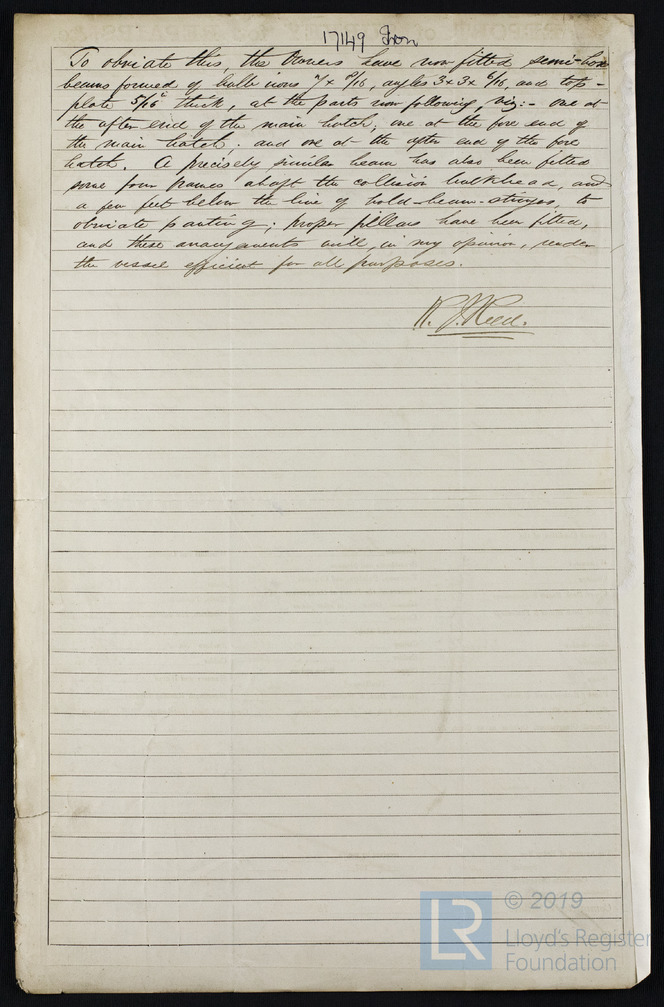 17149 Iron
To obviate this, the Owners have now fitted semi-box
beams formed of bulb irons 7 x 8/16, angles 3 x 3 x 6/16, and top-
plate 5/16 thick, at the parts now following, viz:- one at
the after end of the main hatch; one at the fore end of
the main hatch; and one at the after end of the fore
hatch. A precisely similar beam has also been fitted
some four frames abaft the collision bulkhead, and
a few feet below the line of hold-beam-stringers, to
obviate panting; proper pillars have been fitted,
and these arrangements will, in my opinion, render
the vessel efficient for all purposes.
Reed.
LR
© 2019
Lloyd's Register
Foundation